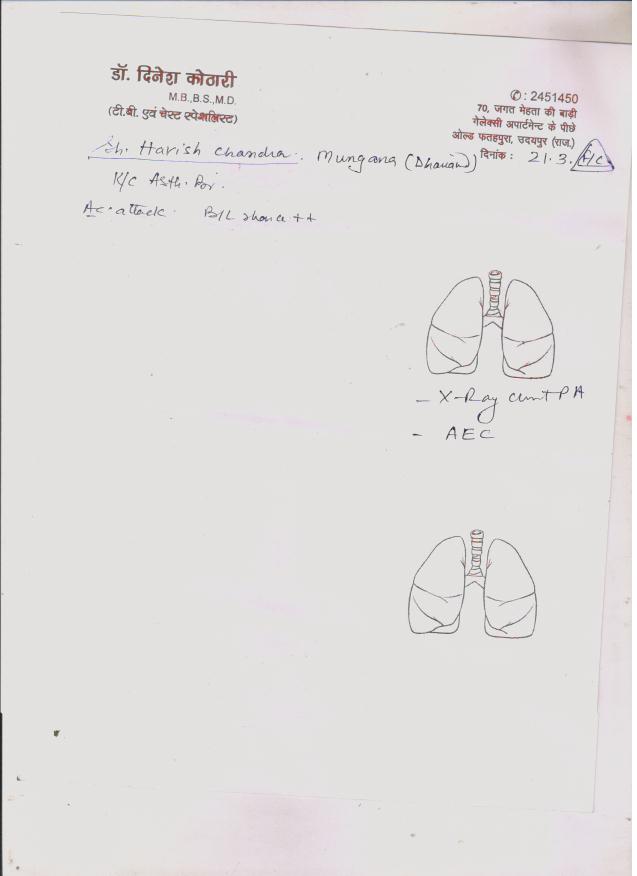 डॉ. दिनेश कोठारी
M.B.,B.S.,M.D.
(टी.बी. एवं चेस्ट स्पेशलिस्ट)
✆: 2451450
70, जगत मेहता की बाड़ी
गेलेक्सी अपार्टमेन्ट के पीछे
ओल्ड फतहपुरा, उदयपुर (राज.)
दिनांक : 21.3.
Sh. Harish Chandra. Mungana
K/c Asth.
Ac. attack. B/L ++
- X-Ray PA
- AEC